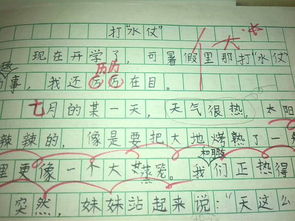 打“水仗”
现在开学了，可暑假里那打“水仗”
历历
事，我还历历在目。
七月的某一天，天气很热，太阳
辣辣的，像是要把大地烤熟了一
里更像一个大“蒸笼”。我们正热得
突然，妹妹站起来说：“天这么